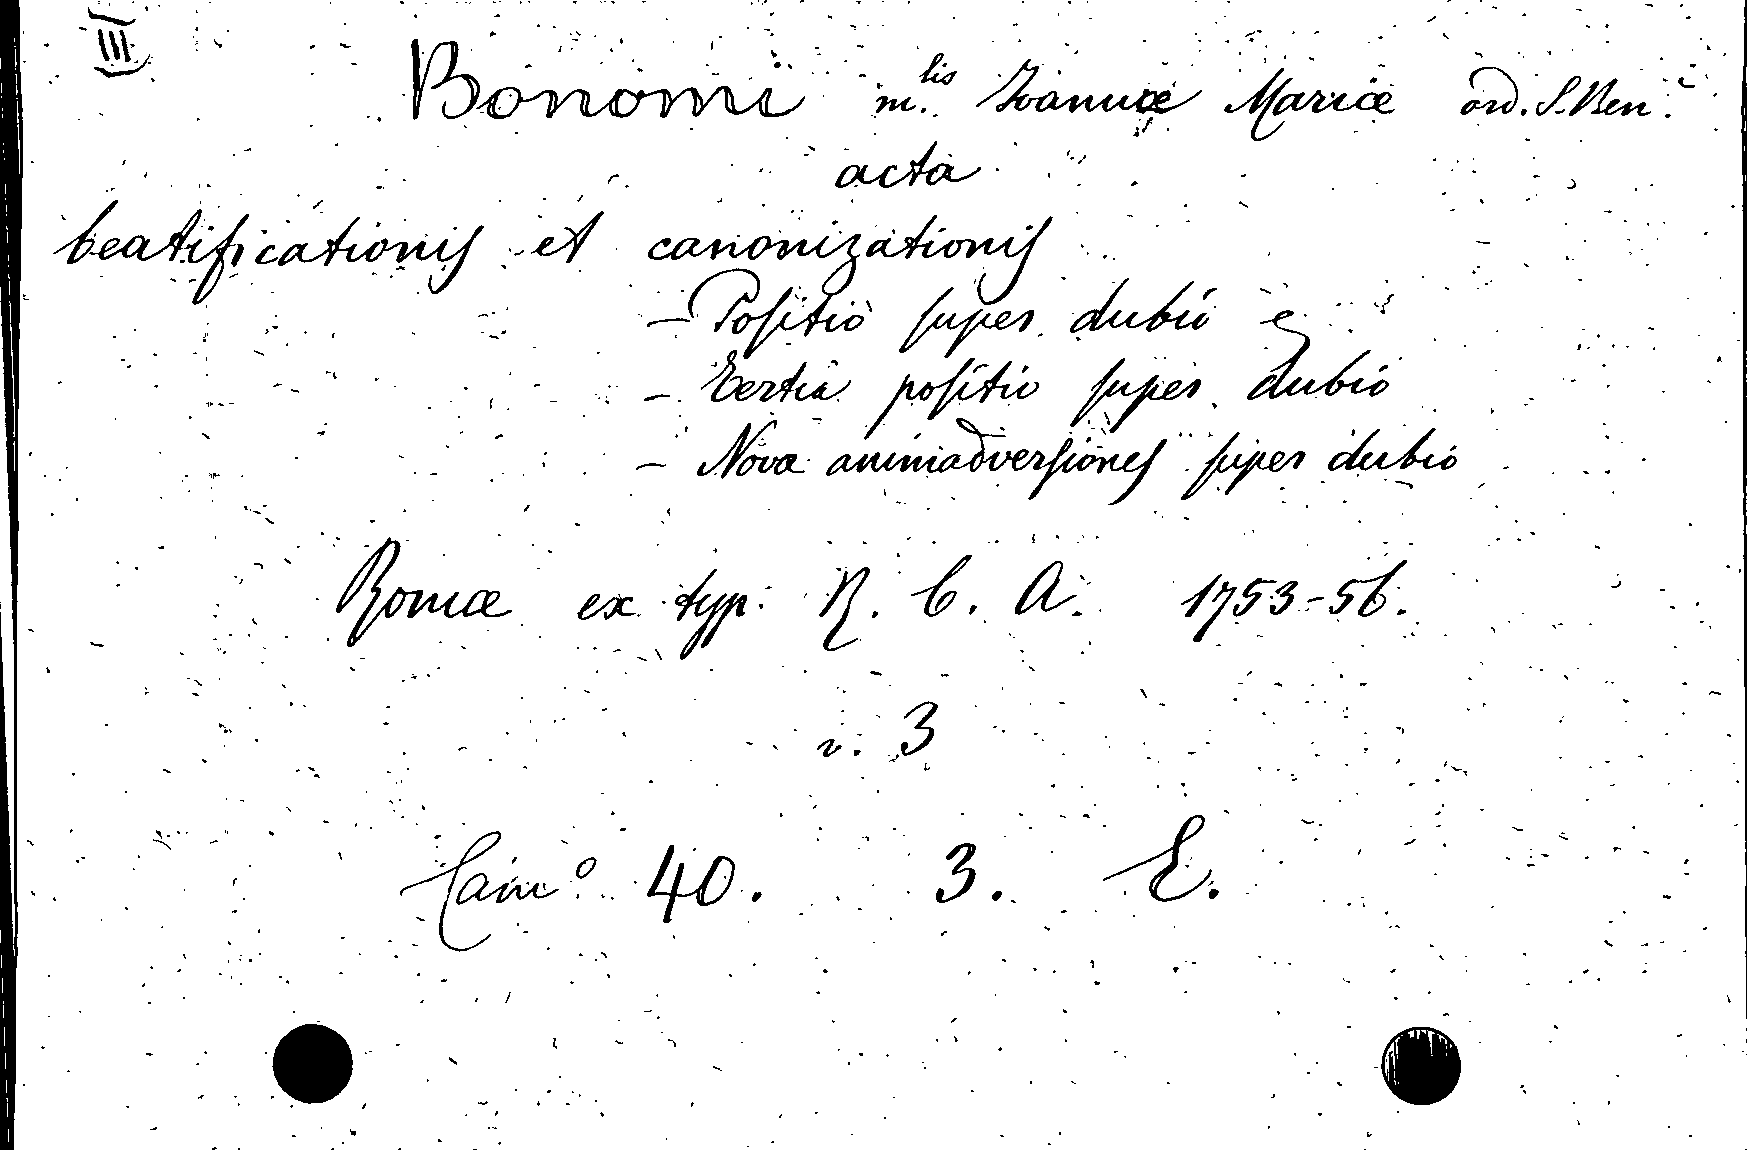 III
Bonomi m.lis Ioannæ Mariæ ord. S. Ben.
acta
beatificationis et canonizationis
- Positio super dubio
- Tertia positio super dubio
- Nova animadversiones super dubio
Romæ ex typ. R. C. A. 1753-56.
v. 3
Cam° 40. 3. E.